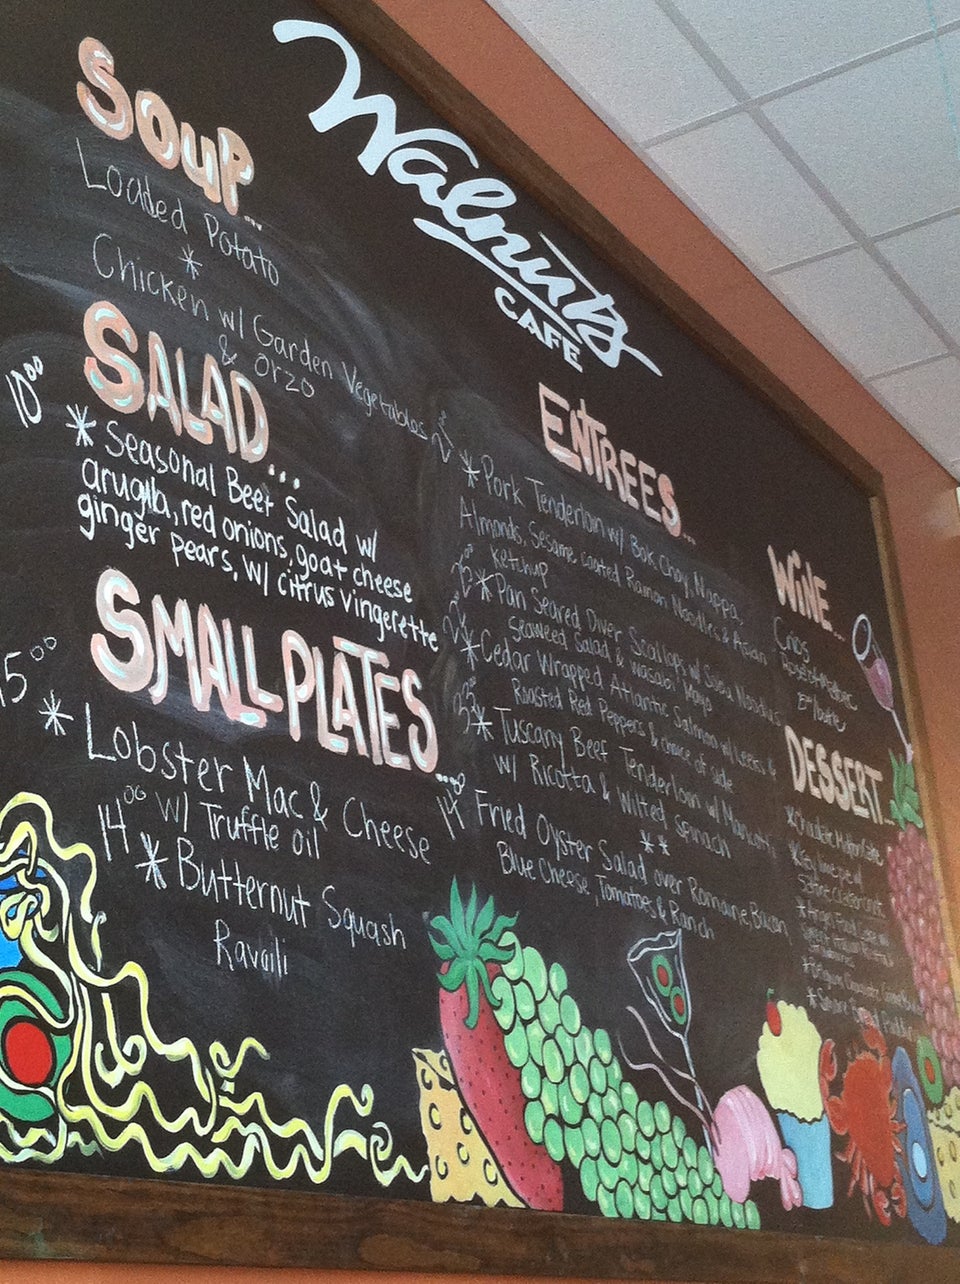 Walnuts
CAFE
SOUP...
Loaded Potato
*
Chicken w/ Garden Vegetables
& Orzo
SALAD...
10⁰⁰
* Seasonal Beet Salad w/
arugula, red onions, goat cheese
ginger pears, w/ citrus vingerette
SMALL PLATES...
15⁰⁰
* Lobster Mac & Cheese
w/ Truffle oil
14⁰⁰
* Butternut Squash
Ravoili
ENTREES...
* Pork Tenderloin w/ Bok Choy, Nappa,
Almonds, Sesame coated Ramon Noodles & Asian
Ketchup
* Pan Seared Diver Scallops w/ Soba Noodles
Seaweed Salad & wasabi Mayo
* Cedar Wrapped Atlantic Salmon w/ Leeks &
Roasted Red Peppers & choice of side
* Tuscany Beef Tenderloin w/
w/ Ricotta & Wilted Spinach
**
14⁰⁰
Fried Oyster Salad over Romaine, Bacon
Blue Cheese, Tomatoes & Ranch
WINE...
DESSERT...
* Chocolate
* Key lime pie w/